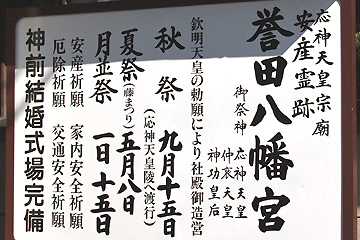 応神天皇宗廟
安産霊跡
誉田八幡宮
御祭神
応神天皇
仲哀天皇
神功皇后
欽明天皇の勅願により社殿御造営
秋祭 九月十五日
(応神天皇陵へ渡行)
夏祭(藤まつり)五月八日
月並祭 一日十五日
安産祈願 家内安全祈願
厄除祈願 交通安全祈願
神前結婚式場完備